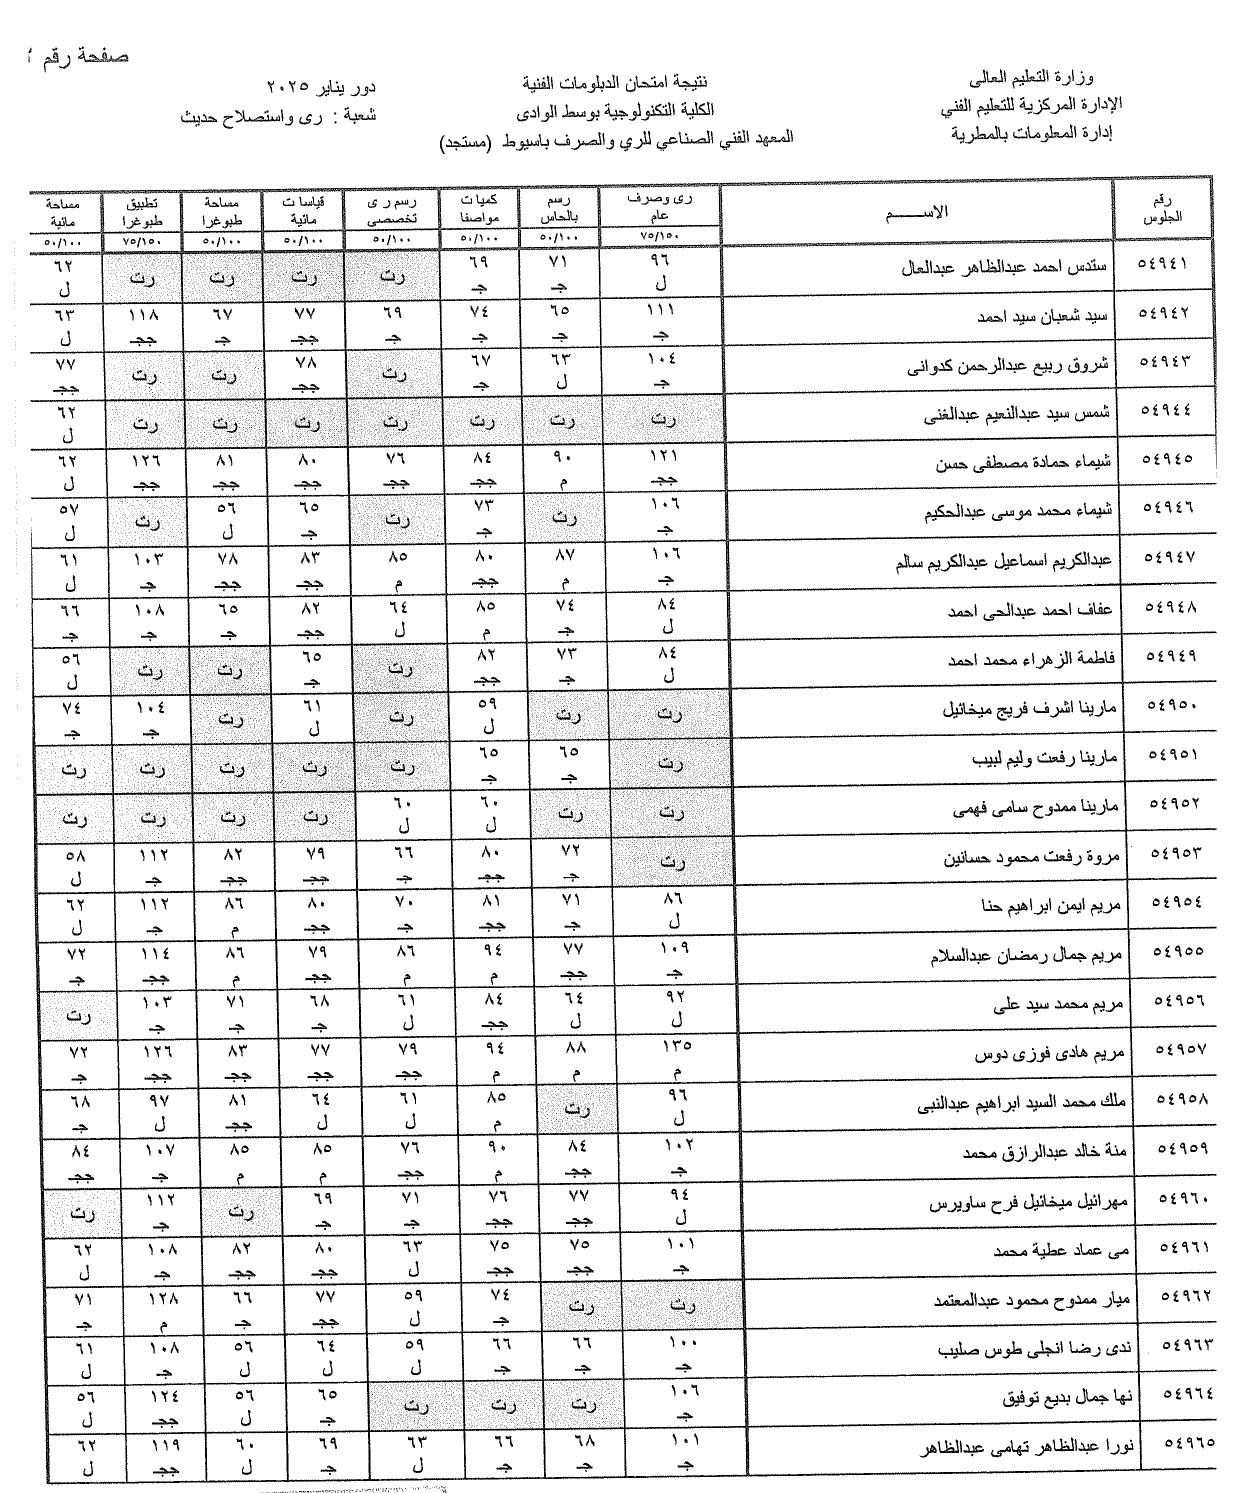 صفحة رقم
وزارة التعليم العالى
الإدارة المركزية للتعليم الفني
إدارة المعلومات بالمطرية
نتيجة امتحان الدبلومات الفنية
الكلية التكنولوجية بوسط الوادى
المعهد الفني الصناعي للري والصرف باسيوط (مستجد)
دور يناير ٢٠٢٥
شعبة : رى واستصلاح حديث
رقم الجلوس | الاســـــم | رى وصرف عام | رسم بالحاس | كميات مواصفا | رسم رى تخصصى | قياسات مائية | مساحة طبوغرا | تطبيق طبوغرا | مساحة مائية
٧٥/١٥٠ | ٥٠/١٠٠ | ٥٠/١٠٠ | ٥٠/١٠٠ | ٥٠/١٠٠ | ٥٠/١٠٠ | ٧٥/١٥٠ | ٥٠/١٠٠
٥٤٩٤١ | ستدس احمد عبدالظاهر عبدالعال | ٩٦ ل | ٧١ جـ | ٦٩ جـ | رت | رت | رت | رت | ٦٢ ل
٥٤٩٤٢ | سيد شعبان سيد احمد | ١١١ جـ | ٦٥ جـ | ٧٤ جـ | ٦٩ جـ | ٧٧ ججـ | ٦٧ جـ | ١١٨ ججـ | ٦٣ ل
٥٤٩٤٣ | شروق ربيع عبدالرحمن كدوانى | ١٠٤ جـ | ٦٣ ل | ٦٧ جـ | رت | ٧٨ ججـ | رت | رت | ٧٧ ججـ
٥٤٩٤٤ | شمس سيد عبدالنعيم عبدالغنى | رت | رت | رت | رت | رت | رت | رت | ٦٢ ل
٥٤٩٤٥ | شيماء حمادة مصطفى حسن | ١٢١ ججـ | ٩٠ م | ٨٤ ججـ | ٧٦ ججـ | ٨٠ ججـ | ٨١ ججـ | ١٢٦ ججـ | ٦٢ ل
٥٤٩٤٦ | شيماء محمد موسى عبدالحكيم | ١٠٦ جـ | رت | ٧٣ جـ | رت | ٦٥ جـ | ٥٦ ل | رت | ٥٧ ل
٥٤٩٤٧ | عبدالكريم اسماعيل عبدالكريم سالم | ١٠٦ جـ | ٨٧ م | ٨٠ ججـ | ٨٥ م | ٨٣ ججـ | ٧٨ ججـ | ١٠٣ جـ | ٦١ ل
٥٤٩٤٨ | عفاف احمد عبدالحى احمد | ٨٤ ل | ٧٤ جـ | ٨٥ م | ٦٤ ل | ٨٢ ججـ | ٦٥ جـ | ١٠٨ جـ | ٦٦ جـ
٥٤٩٤٩ | فاطمة الزهراء محمد احمد | ٨٤ ل | ٧٣ جـ | ٨٢ ججـ | رت | ٦٥ جـ | رت | رت | ٥٦ ل
٥٤٩٥٠ | مارينا اشرف فريج ميخائيل | رت | رت | ٥٩ ل | رت | ٦١ ل | رت | ١٠٤ جـ | ٧٤ جـ
٥٤٩٥١ | مارينا رفعت وليم لبيب | رت | ٦٥ جـ | ٦٥ جـ | رت | رت | رت | رت | رت
٥٤٩٥٢ | مارينا ممدوح سامى فهمى | رت | رت | ٦٠ ل | ٦٠ ل | رت | رت | رت | رت
٥٤٩٥٣ | مروة رفعت محمود حسانين | رت | ٧٢ جـ | ٨٠ ججـ | ٦٦ جـ | ٧٩ ججـ | ٨٢ ججـ | ١١٢ جـ | ٥٨ ل
٥٤٩٥٤ | مريم ايمن ابراهيم حنا | ٨٦ ل | ٧١ جـ | ٨١ ججـ | ٧٠ جـ | ٨٠ ججـ | ٨٦ م | ١١٢ جـ | ٦٢ ل
٥٤٩٥٥ | مريم جمال رمضان عبدالسلام | ١٠٩ جـ | ٧٧ ججـ | ٩٤ م | ٨٦ م | ٧٩ ججـ | ٨٦ م | ١١٤ ججـ | ٧٢ جـ
٥٤٩٥٦ | مريم محمد سيد على | ٩٢ ل | ٦٤ ل | ٨٤ ججـ | ٦١ ل | ٦٨ جـ | ٧١ جـ | ١٠٣ جـ | رت
٥٤٩٥٧ | مريم هادى فوزى دوس | ١٣٥ م | ٨٨ م | ٩٤ م | ٧٩ ججـ | ٧٧ ججـ | ٨٣ ججـ | ١٢٦ ججـ | ٧٢ جـ
٥٤٩٥٨ | ملك محمد السيد ابراهيم عبدالنبى | ٩٦ ل | رت | ٨٥ م | ٦١ ل | ٦٤ ل | ٨١ ججـ | ٩٧ ل | ٦٨ جـ
٥٤٩٥٩ | منة خالد عبدالرازق محمد | ١٠٢ جـ | ٨٤ ججـ | ٩٠ م | ٧٦ ججـ | ٨٥ م | ٨٥ م | ١٠٧ جـ | ٨٤ ججـ
٥٤٩٦٠ | مهرائيل ميخائيل فرح ساويرس | ٩٤ ل | ٧٧ ججـ | ٧٦ ججـ | ٧١ جـ | ٦٩ جـ | رت | ١١٢ جـ | رت
٥٤٩٦١ | مى عماد عطية محمد | ١٠١ جـ | ٧٥ ججـ | ٧٥ ججـ | ٦٣ ل | ٨٠ ججـ | ٨٢ ججـ | ١٠٨ جـ | ٦٢ ل
٥٤٩٦٢ | ميار ممدوح محمود عبدالمعتمد | رت | رت | ٧٤ جـ | ٥٩ ل | ٧٧ ججـ | ٦٦ جـ | ١٢٨ م | ٧١ جـ
٥٤٩٦٣ | ندى رضا انجلى طوس صليب | ١٠٠ جـ | ٦٦ جـ | ٦٦ جـ | ٥٩ ل | ٦٤ ل | ٥٦ ل | ١٠٨ جـ | ٦١ ل
٥٤٩٦٤ | نها جمال بديع توفيق | ١٠٦ جـ | رت | رت | رت | ٦٥ جـ | ٥٦ ل | ١٢٤ ججـ | ٥٦ ل
٥٤٩٦٥ | نورا عبدالظاهر تهامى عبدالظاهر | ١٠١ جـ | ٦٨ جـ | ٦٦ جـ | ٦٣ ل | ٦٩ جـ | ٦٠ ل | ١١٩ ججـ | ٦٢ ل